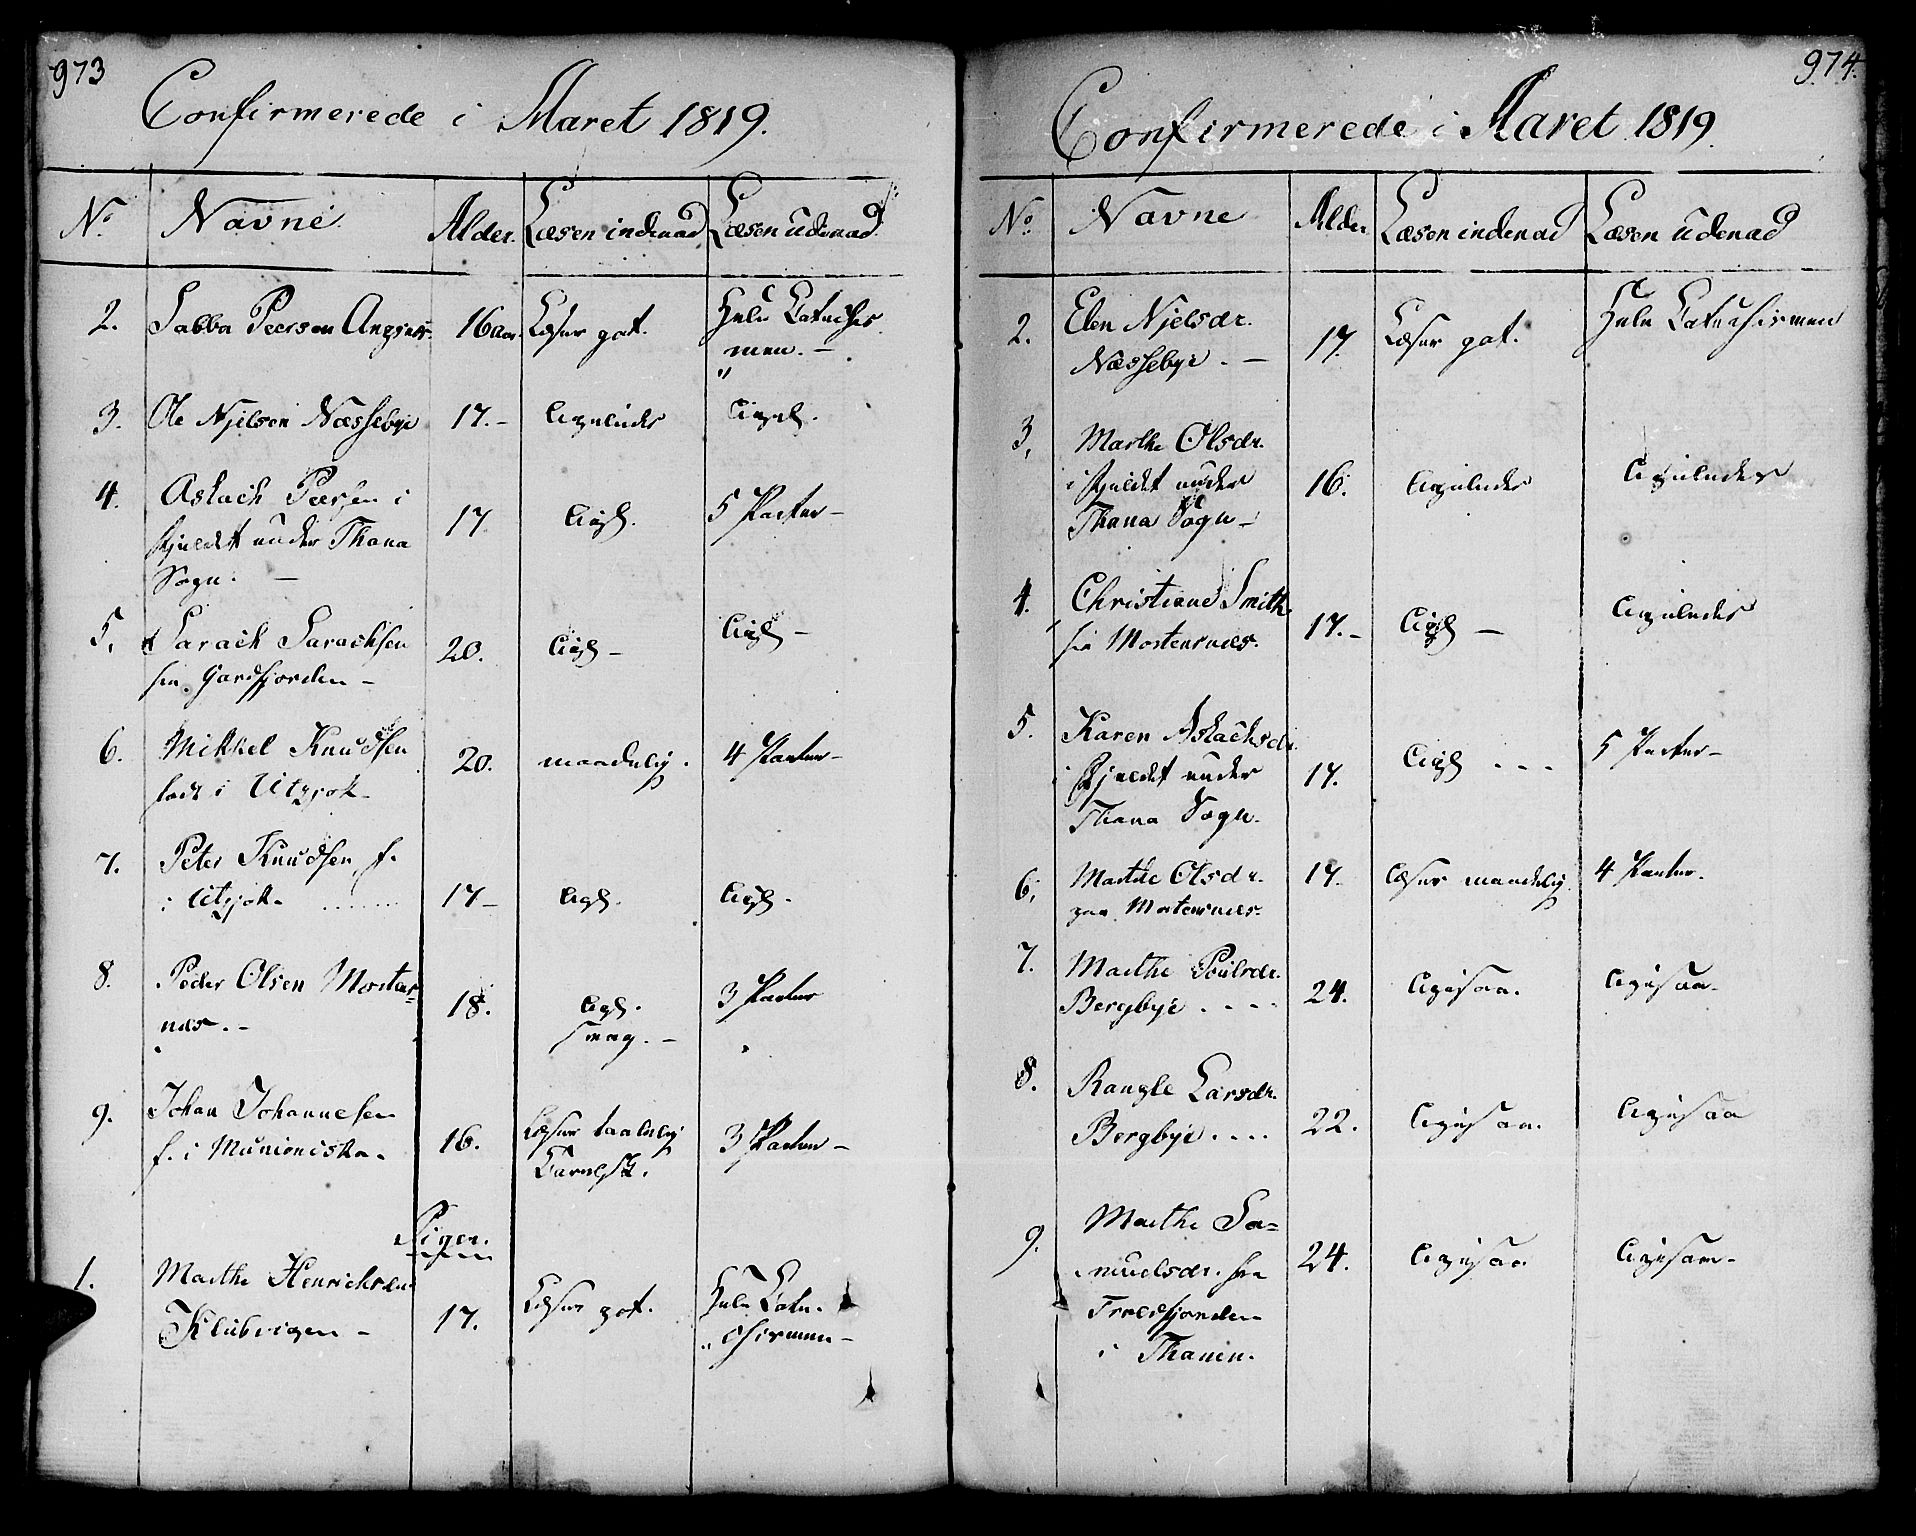 973
Confirmerede i Aaret 1819.
No Navne. Alder. Læsen indenad Læsen udenad.
2. Sabba Peersen Angsnæs. 16 aar. Læser got. Hele Catechis
men. –
3. Ole Njelsen Næssebye 17. – Ligeledes Ligel.
4. Aslach Peersen i
fjeldet under Thana
Sogn. – 17. Ligl. 5 Parter –
5. Sarach Sarachsen
fra Gardfjorden – 20. Ligl – Ligl –
6. Mikkel Knudsen
født i Utzjok – 20. maadelig. 4 Parter –
7. Peter Knudsen, f.
i Utzjok. 17 – Ligl. Ligl.
8. Peder Olsen Mortens-
næs. – 18. Ligl.
svag. – 3 Parter
9. Johan Johannesen
f. i Munioniska. 16. Læser taalelig
Qvænsk. 3 Parter –
Piger.
1. Marthe Henrichsdr.
Klubvigen – 17. Læser got. Hele Cate-
chismen –
974.
Confirmerede i Aaret 1819.
No. Navne Alder Læsen indenad Læsen udenad
2. Elen Njelsdr.
Næssebye. – 17. Læser got. Hele Catechismen
3. Marthe Olsdr.
i fjeldet under
Thana Sogn – 16. Ligeledes Ligeledes
4. Christiane Smith.
fra Mortensnæs. 17. – Ligl – Ligeledes
5. Karen Aslachsdr.
i fjeldet under
Thana Sogn. 17. Ligl . . . 5 Parter –
6. Marthe Olsdr.
paa Mortensnæs. 17. Læser maadelig. 4 Parter.
7. Marthe Poulsdr.
Bergbye . . . . 24. Ligesaa. Ligesaa.
8. Rangle Larsdr.
Bergbye . . . . 22. Ligesaa. Ligesaa
9. Marthe Sa-
muelsdr. fra
Troldfjorden
i Thanen. 24. Ligesaa Ligesaa –